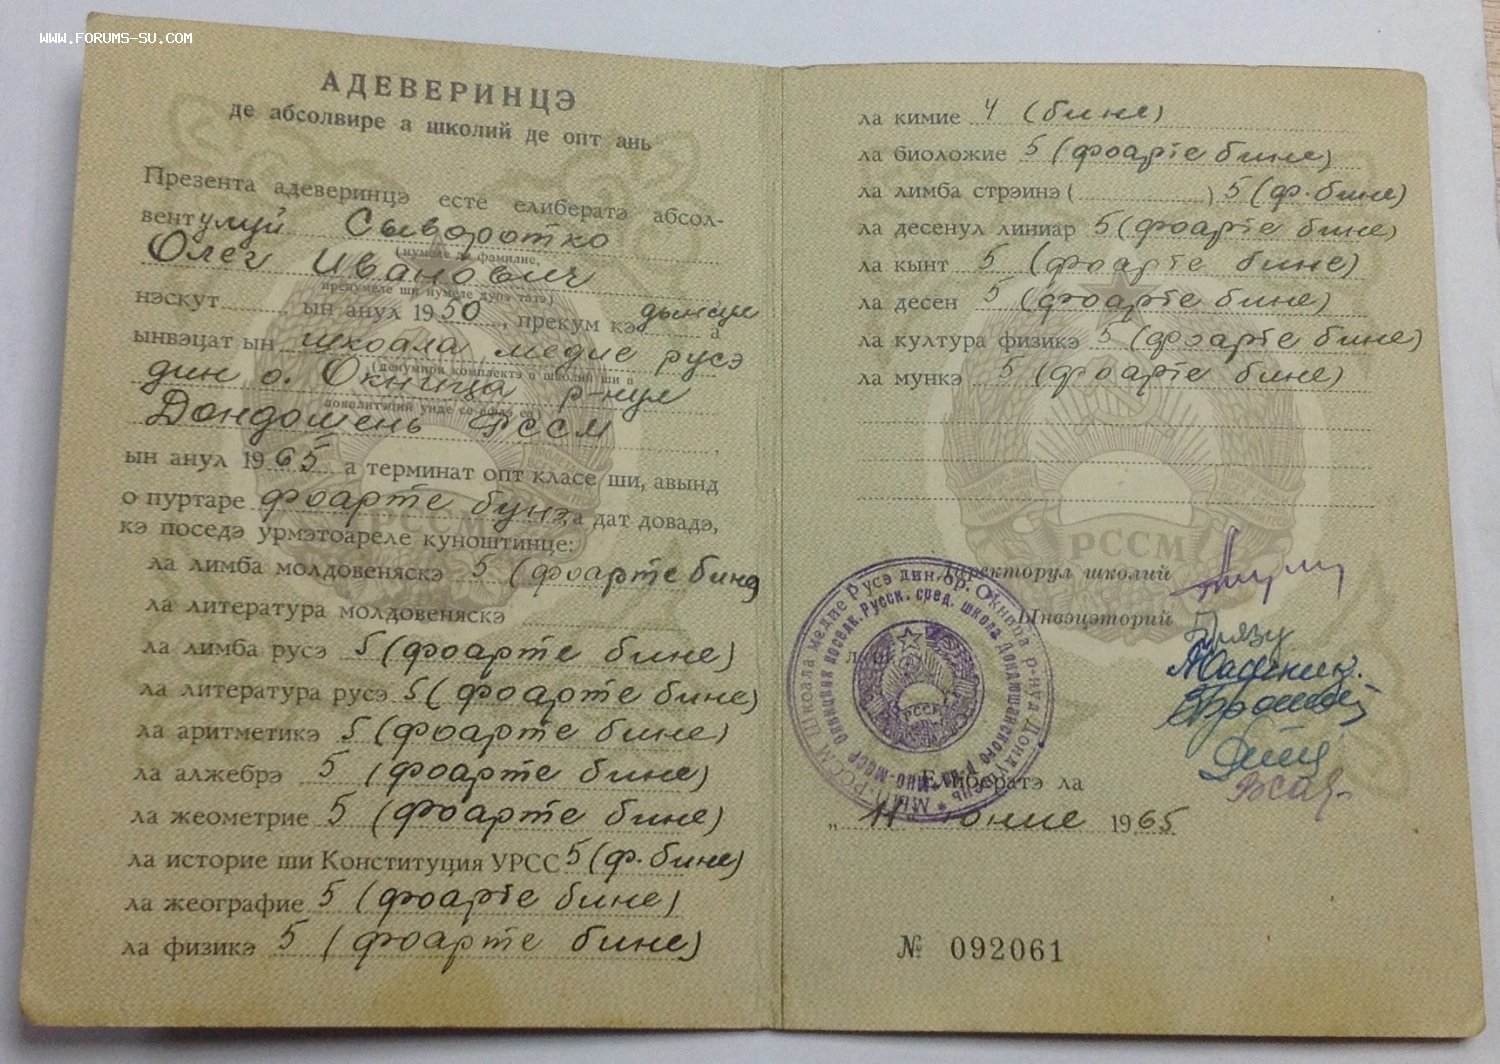 www.forums-su.com
АДЕВЕРИНЦЭ
де абсолвире а школий де опт ань
Презента адеверинцэ есте елибератэ абсол-
вентулуй Сыворотко
(нумеле де фамилие,
Олег Иванович
пренумеле ши нумеле дупэ татэ)
нэскут ын анул 1950, прекум кэ дынсул а
ынвэцат ын шкоала медие русэ
(денумиря комплектэ а школий ши а
дин о. Окница р-нул
локалитэций унде се афлэ еа)
Дондошень РССМ
ын анул 1965 а терминат опт класе ши, авынд
о пуртаре фоарте бунэ, а дат довадэ,
кэ поседэ урмэтоареле куноштинце:
ла лимба молдовеняскэ 5 (фоарте бине)
ла литература молдовеняскэ
ла лимба русэ 5 (фоарте бине)
ла литература русэ 5 (фоарте бине)
ла аритметикэ 5 (фоарте бине)
ла алжебрэ 5 (фоарте бине)
ла жеометрие 5 (фоарте бине)
ла историе ши Конституция УРСС 5 (ф. бине)
ла жеографие 5 (фоарте бине)
ла физикэ 5 (фоарте бине)
ла кимие 4 (бине)
ла биоложие 5 (фоарте бине)
ла лимба стрэинэ ( ) 5 (ф. бине)
ла десенул линиар 5 (фоарте бине)
ла кынт 5 (фоарте бине)
ла десен 5 (фоарте бине)
ла култура физикэ 5 (фоарте бине)
ла мункэ 5 (фоарте бине)
РССМ
РССМ
Директорул школий
Ынвэцэторий
Школа медие Русэ дин ор. Окница р-нул Дондушень
Русск. сред. школа
РССМ
Елибератэ ла
„11" юние 1965
№ 092061